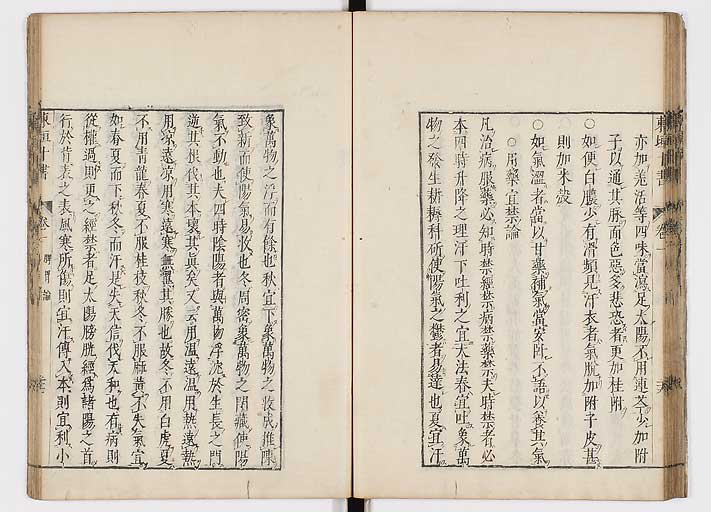 亦加羌活等四味當瀉足太陽不用連芩少加附
子以通其脉而色惡多悲恐者更加桂附
○如便白膿少有滑頻見汙衣者氣脱加附子皮甚
則加米殼
○如氣溫者當以甘藥補氣當安卧不語以養其氣
○用藥宜禁論
凡治病服藥必知時禁經禁病禁藥禁夫時禁者必
本四時升降之理汗下吐利之宜大法春宜吐象萬
物之發生耕耨科斫使陽氣之鬱者易達也夏宜汗
象萬物之浮而有餘也秋宜下象萬物之收成推陳
致新而使陽氣易收也冬周密象萬物之閉藏使陽
氣不動也夫四時陰陽者與萬物浮沈於生長之門
逆其根伐其本壞其眞矣又云用溫遠溫用熱遠熱
用凉遠凉用寒遠寒無翼其勝也故冬不用白虎夏
不用青龍春夏不服桂枝秋冬不服麻黃不失氣宜
如春夏而下秋冬而汗是失天信伐天和也有病則
從權過則更之經禁者足太陽膀胱經爲諸陽之首
行於背表之表風寒所傷則宜汗傳入本則宜利小
東垣十書
卷二
脾胃論